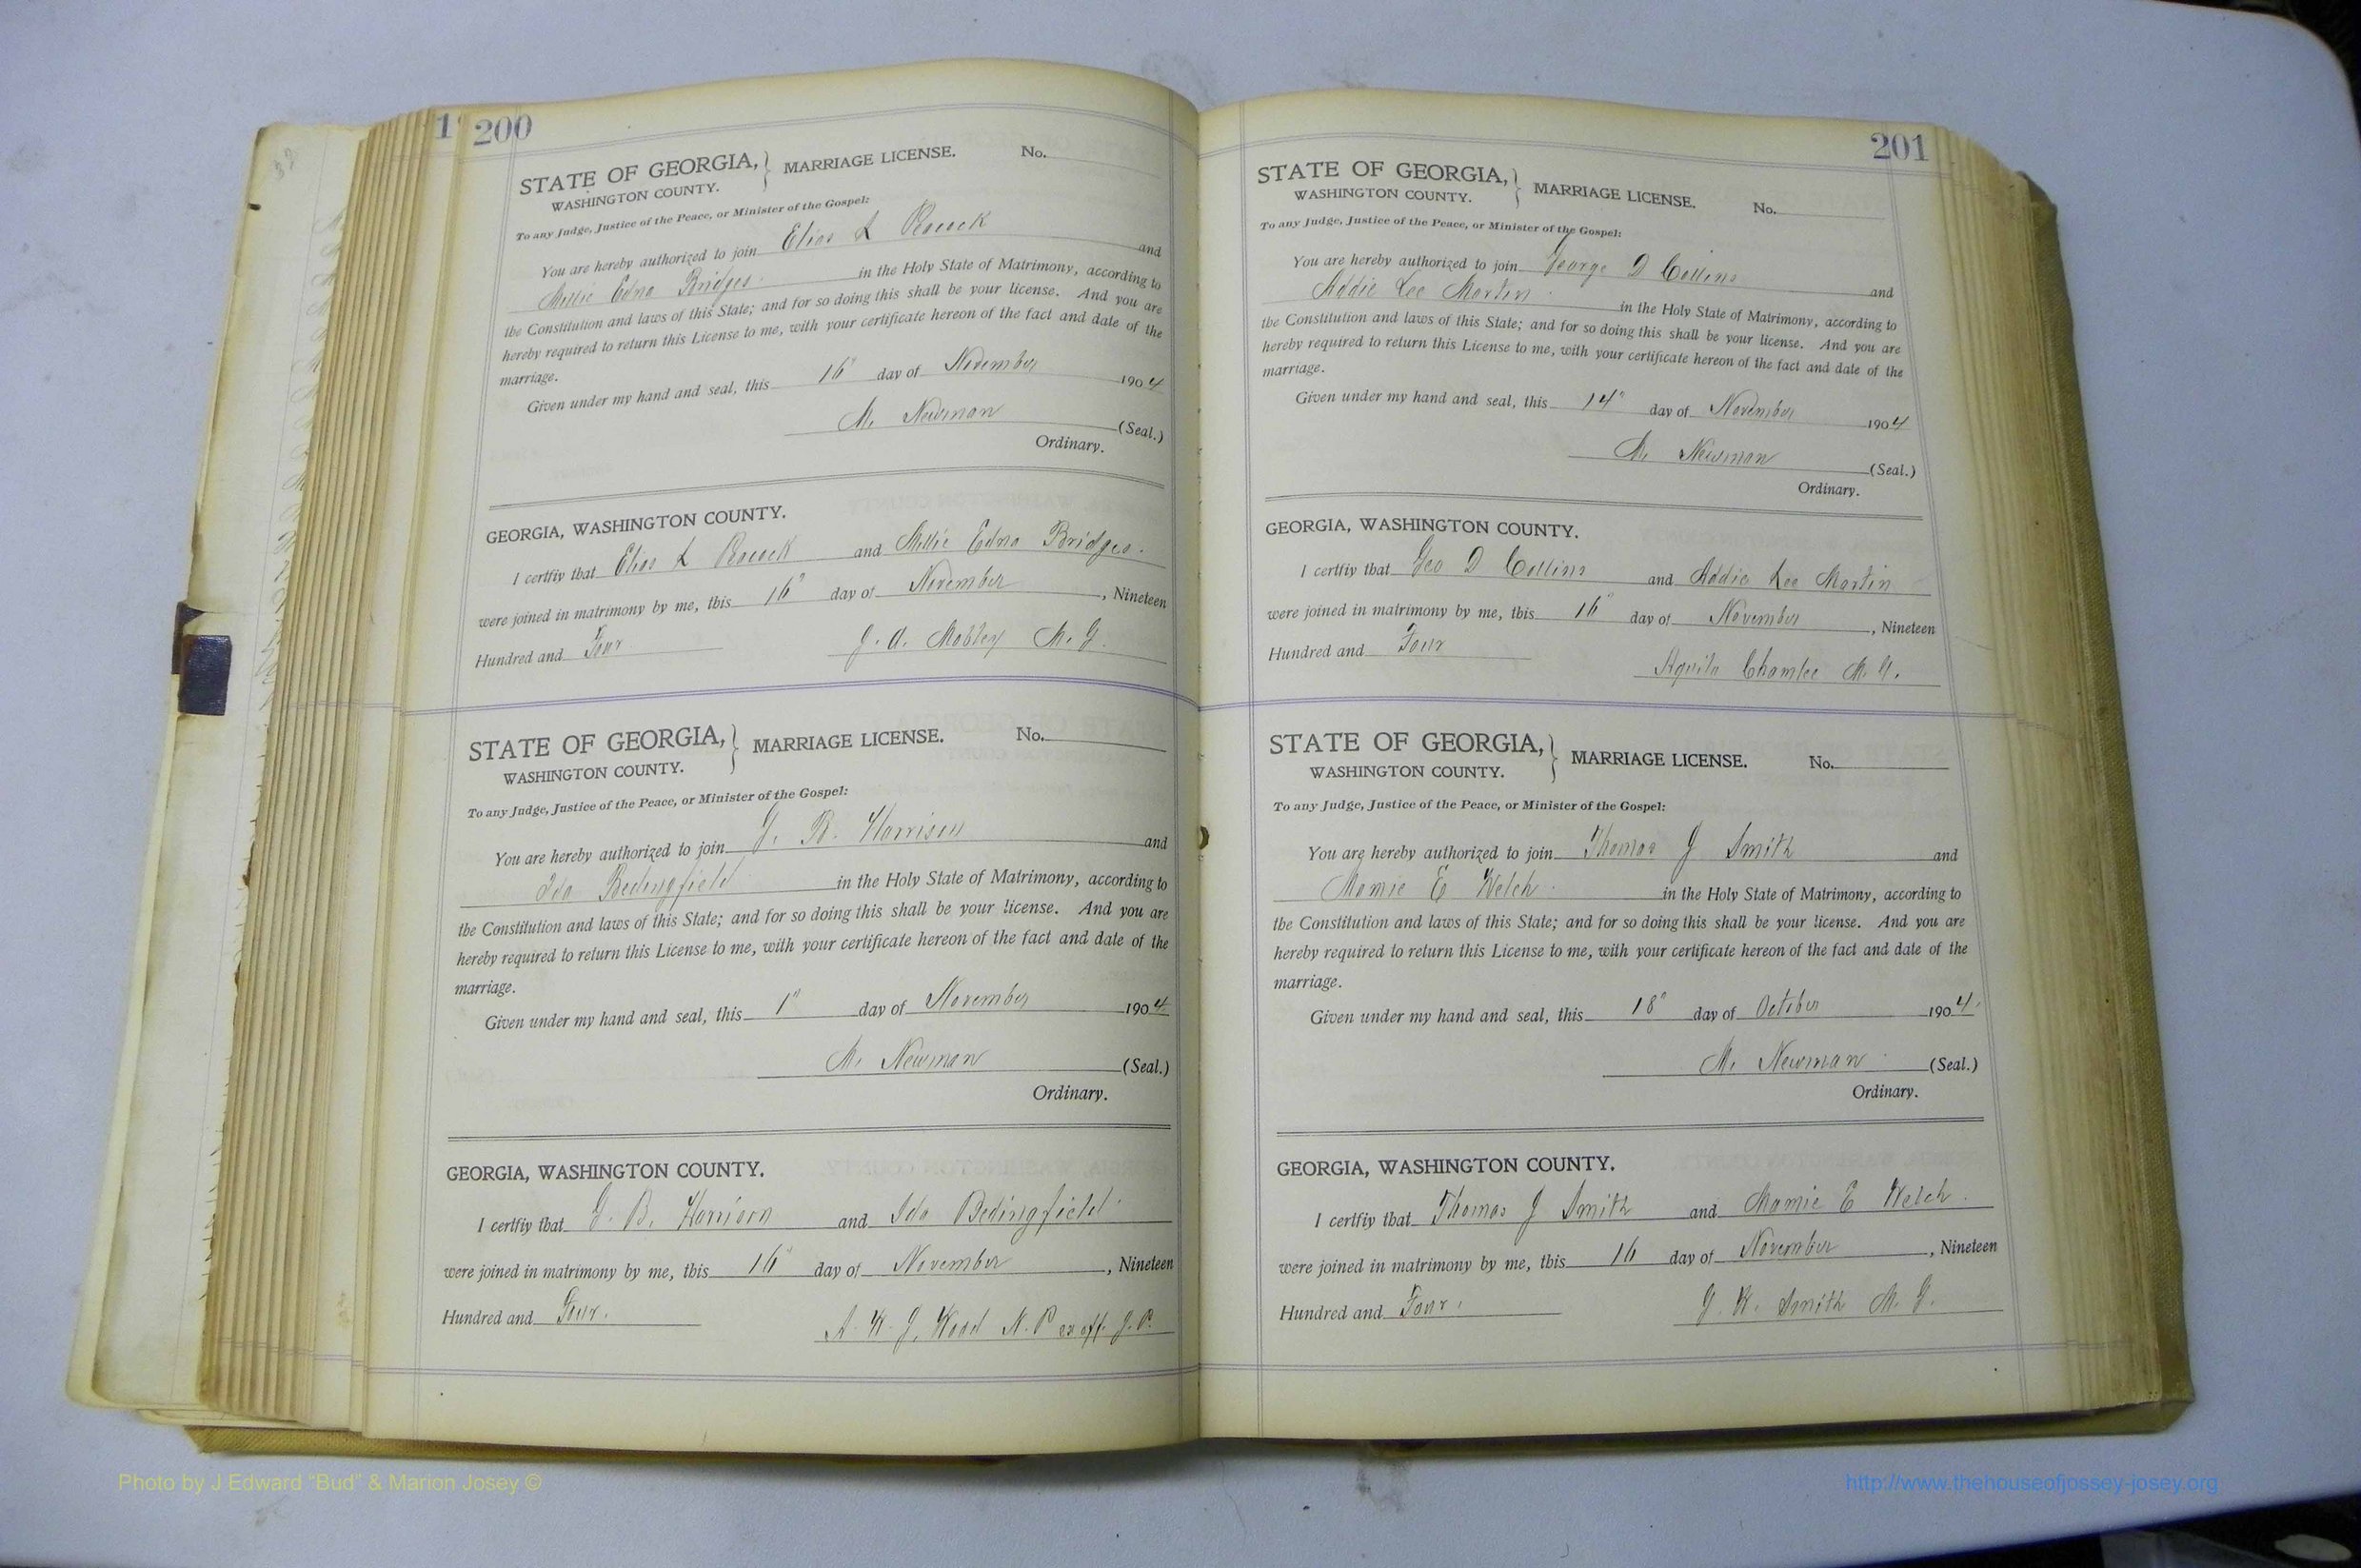 200
STATE OF GEORGIA, } MARRIAGE LICENSE. No.
WASHINGTON COUNTY.
To any Judge, Justice of the Peace, or Minister of the Gospel:
You are hereby authorized to join Elias L Peacock and
Millie Edna Bridges in the Holy State of Matrimony, according to
the Constitution and laws of this State; and for so doing this shall be your license. And you are
hereby required to return this License to me, with your certificate hereon of the fact and date of the
marriage.
Given under my hand and seal, this 16" day of November 1904
M. Newman (Seal.)
Ordinary.
GEORGIA, WASHINGTON COUNTY.
I certfiy that Elias L Peacock and Millie Edna Bridges.
were joined in matrimony by me, this 16" day of November, Nineteen
Hundred and Four J. A. Mobley M. G.
STATE OF GEORGIA, } MARRIAGE LICENSE. No.
WASHINGTON COUNTY.
To any Judge, Justice of the Peace, or Minister of the Gospel:
You are hereby authorized to join B. Harrison and
Ida Bedingfield in the Holy State of Matrimony, according to
the Constitution and laws of this State; and for so doing this shall be your license. And you are
hereby required to return this License to me, with your certificate hereon of the fact and date of the
marriage.
Given under my hand and seal, this 1" day of November 1904
M. Newman (Seal.)
Ordinary.
GEORGIA, WASHINGTON COUNTY.
I certfiy that B. Harrison and Ida Bedingfield
were joined in matrimony by me, this 16" day of November, Nineteen
Hundred and Four. W. J. Wood N. P ex off. J. P.
201
STATE OF GEORGIA, } MARRIAGE LICENSE. No.
WASHINGTON COUNTY.
To any Judge, Justice of the Peace, or Minister of the Gospel:
You are hereby authorized to join George D Collins and
Addie Lee Martin in the Holy State of Matrimony, according to
the Constitution and laws of this State; and for so doing this shall be your license. And you are
hereby required to return this License to me, with your certificate hereon of the fact and date of the
marriage.
Given under my hand and seal, this 14" day of November 1904
M. Newman (Seal.)
Ordinary.
GEORGIA, WASHINGTON COUNTY.
I certfiy that Geo D Collins and Addie Lee Martin
were joined in matrimony by me, this 16" day of November, Nineteen
Hundred and Four Aquila Chamlee M. G.
STATE OF GEORGIA, } MARRIAGE LICENSE. No.
WASHINGTON COUNTY.
To any Judge, Justice of the Peace, or Minister of the Gospel:
You are hereby authorized to join Thomas J Smith and
Mamie E Welch in the Holy State of Matrimony, according to
the Constitution and laws of this State; and for so doing this shall be your license. And you are
hereby required to return this License to me, with your certificate hereon of the fact and date of the
marriage.
Given under my hand and seal, this 18" day of October 1904
M. Newman (Seal.)
Ordinary.
GEORGIA, WASHINGTON COUNTY.
I certfiy that Thomas J Smith and Mamie E Welch.
were joined in matrimony by me, this 16 day of November, Nineteen
Hundred and Four. Smith M. G.
Photo by J Edward "Bud" & Marion Josey ©
http://www.thehouseofjossey-josey.org